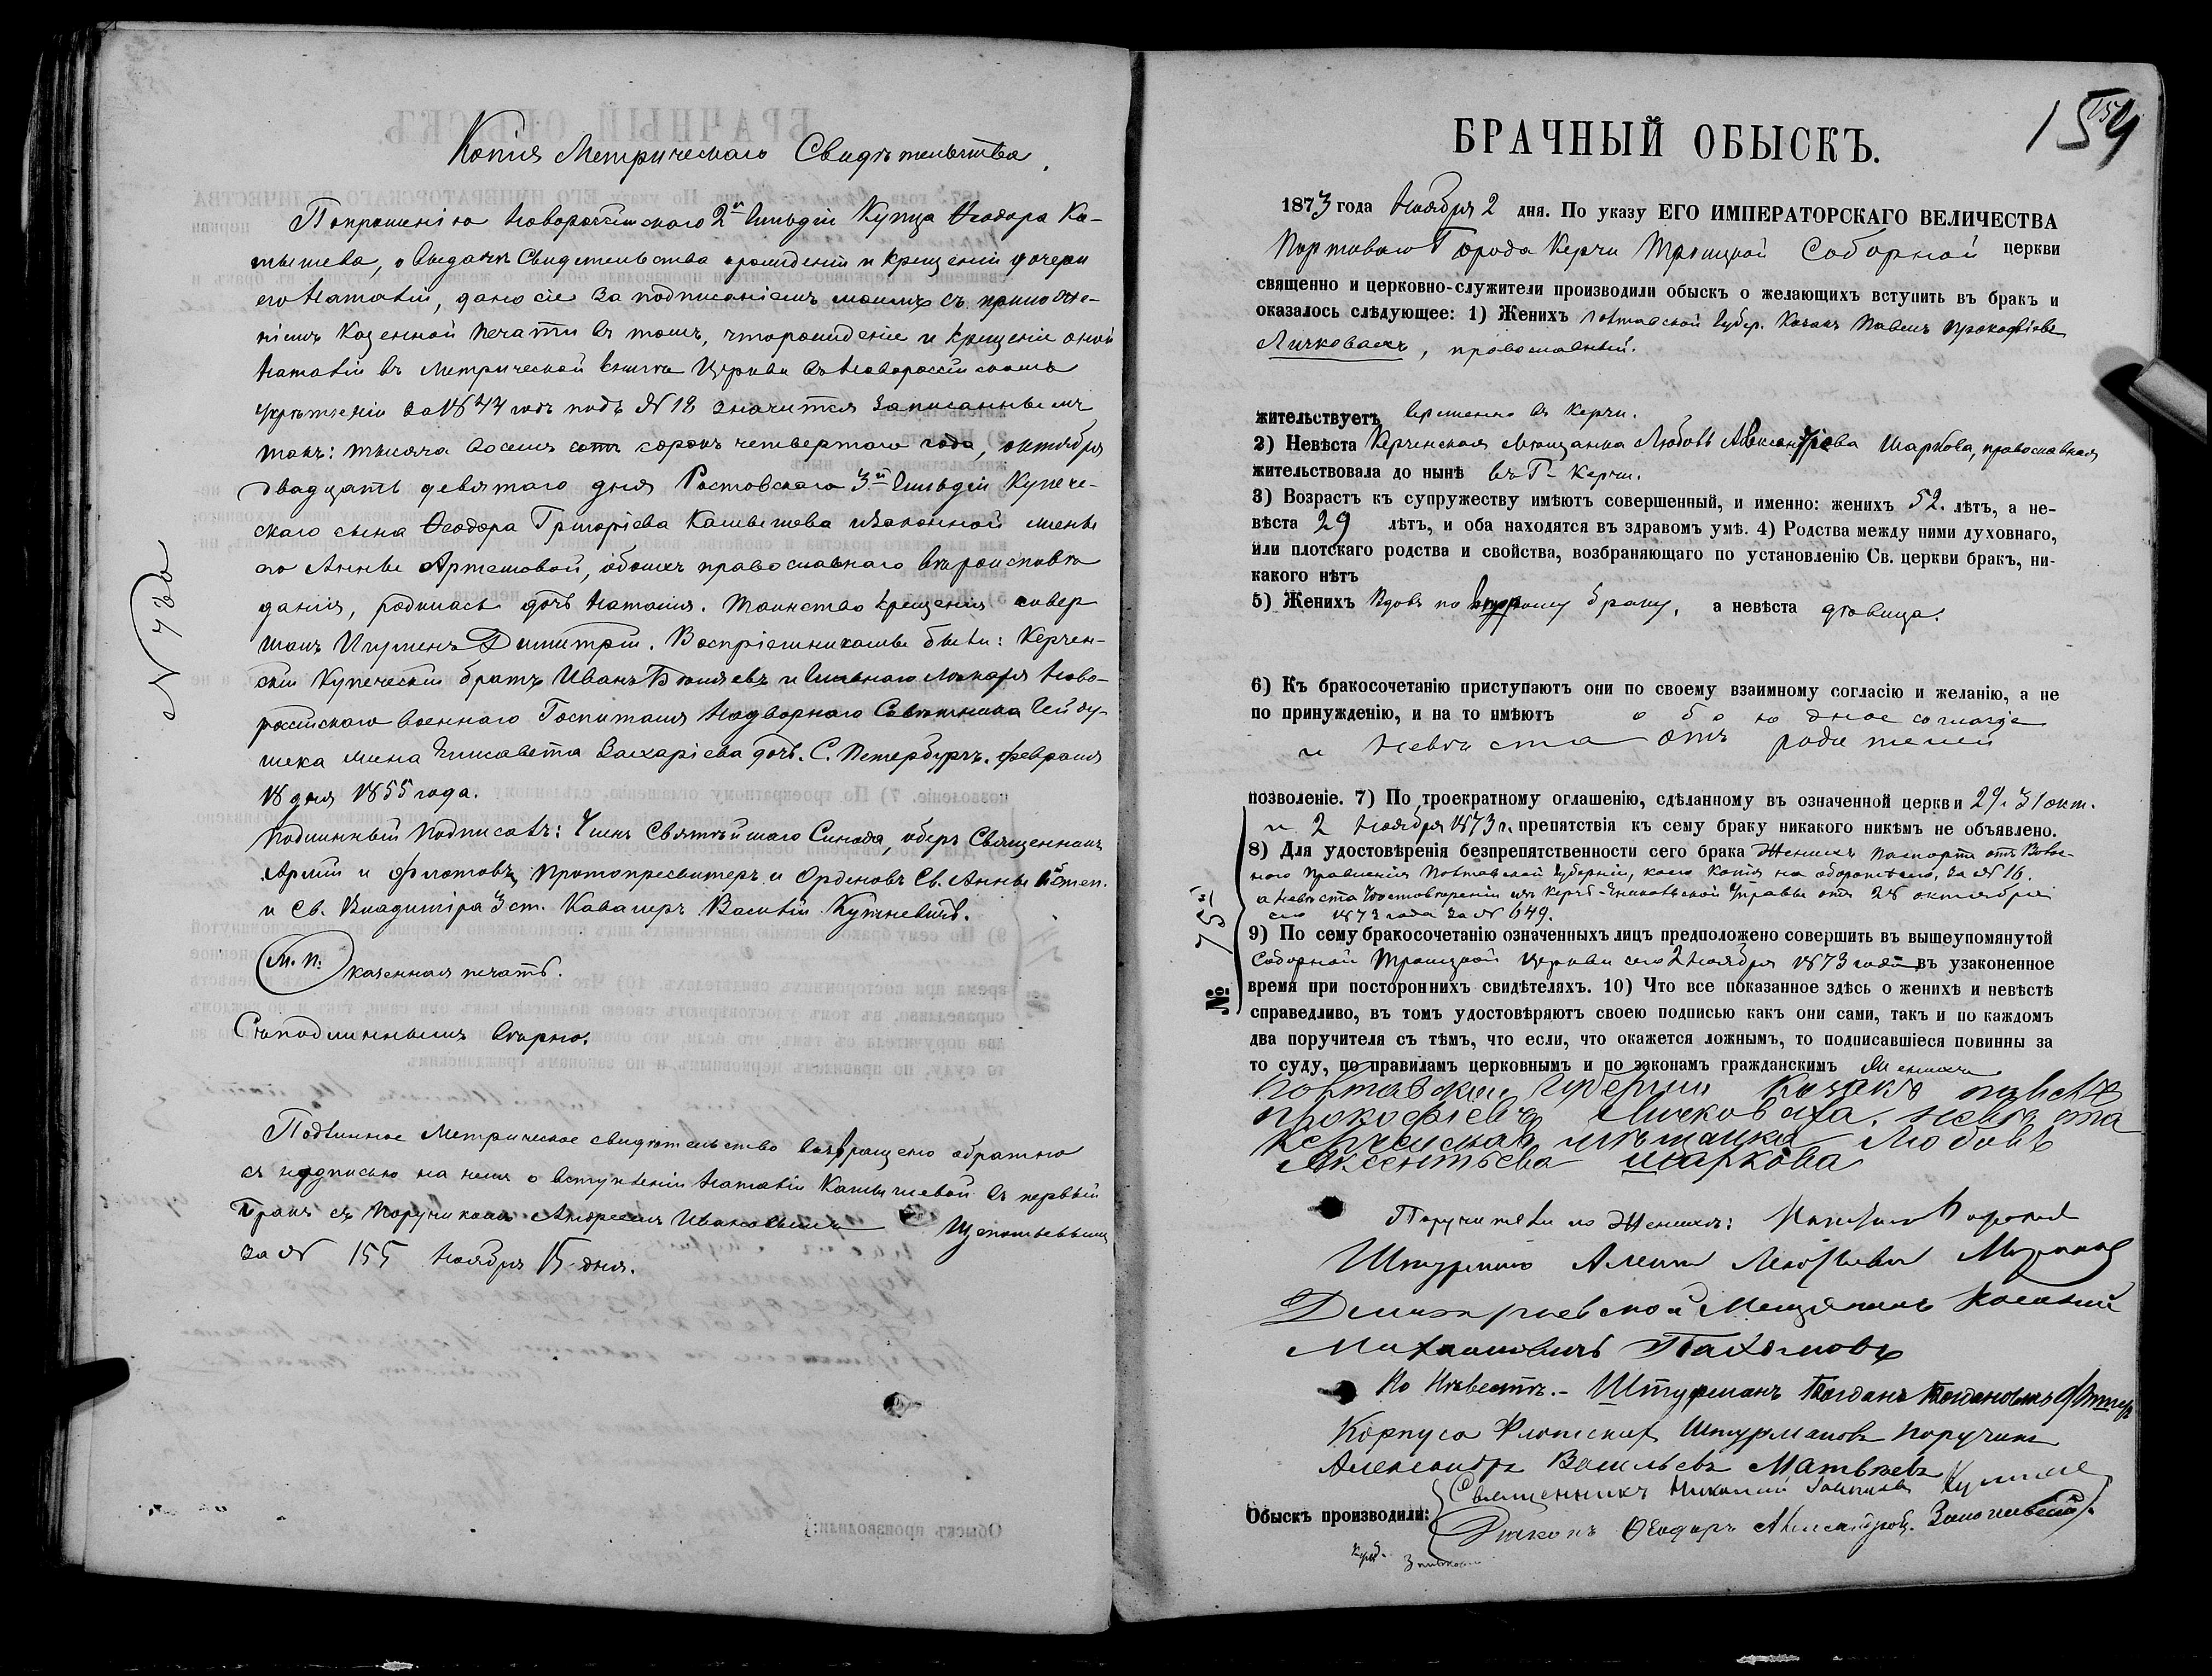 Копія Метрическаго Свидѣтельства.
По прошенію Новороссійскаго 2й Гильдіи Купца Ѳеодора Ка-
мышева, о выдачѣ Свидетельства о рожденіи и крещеніи дочери
его Наталіи, дано сіе за подписаніемъ моимъ съ приложе-
ніемъ Казенной печати въ томъ, что рожденіе и крещеніе оной
Наталіи въ Метрической книгѣ Церкви въ Новороссійскомъ
Укрѣпленіи за 1844 годъ подъ № 18 значится записаннымъ
такъ: тысяча восемь сотъ сорокъ четвертаго года, октября
двадцать девятаго дня Ростовскаго 3й Гильдіи Купече-
скаго сына Ѳеодора Григоріева Камышева и законной жены
его Анны Артемовой, обоихъ православнаго вѣроисповѣ
данія, родилась дочь Наталія. Таинство крещенія совер
шалъ Игуменъ Димитрій. Воспріемниками были: Керчен-
скій Купеческій братъ Иванъ и главнаго лѣкаря Ново-
россійскаго военнаго Госпиталя Надворнаго Совѣтника
жена Елисавета Захаріева дочь. С. Петербургъ. февраля
18 дня 1855 года.
Подлинный подписалъ: Членъ Святѣйшаго Синода, оберъ Священникъ
Арміи и флотовъ, Протопресвитеръ и Орденовъ Св. Анны степ.
и Св. Владиміра 3 ст. Кавалеръ Василій Кутневичъ.
М. П. казенная печать.
Съ подлиннымъ вѣрно.
Подлинное Метрическое свидѣтельство возвращено обратно
съ надписью на немъ о вступленіи Наталіи Камышевой въ первый
бракъ съ Поручикомъ Андреемъ Ивановымъ
за № 155 Ноября 15 дня.
БРАЧНЫЙ ОБЫСКЪ.
159
1873 года Ноября 2 дня. По указу ЕГО ИМПЕРАТОРСКАГО ВЕЛИЧЕСТВА
Портоваго Города Керчи Троицкой Соборной церкви
священно и церковно-служители производили обыскъ о желающихъ вступить въ бракъ и
оказалось слѣдующее: 1) Женихъ Полтавской Губер. Козакъ Павелъ Прокофіевъ
Личковаха, православный.
жительствуетъ временно въ Керчи.
2) Невѣста Керченская мѣщанка Любовь Шаркова, православная
жительствовала до нынѣ въ Г. Керчи.
3) Возрастъ къ супружеству имѣютъ совершенный, и именно: женихъ 52. лѣтъ, а не-
вѣста 29 лѣтъ, и оба находятся въ здравомъ умѣ. 4) Родства между ними духовнаго,
или плотскаго родства и свойства, возбраняющаго по установленію Св. церкви бракъ, ни-
какого нѣтъ
5) Женихъ Вдовъ по второму браку, а невѣста дѣвица.
6) Къ бракосочетанію приступаютъ они по своему взаимному согласію и желанію, а не
по принужденію, и на то имѣютъ обоюдное согласіе
и невѣста отъ родителей
позволеніе. 7) По троекратному оглашенію, сдѣланному въ означенной церкви 29. 31 окт.
и 2 Ноября 1873 г. препятствія къ сему браку никакого никѣмъ не объявлено.
8) Для удостовѣренія безпрепятственности сего брака Женихъ паспортъ отъ Волос-
наго Правленія Полтавской Губерніи, коего Копія на оборотѣ сего, за № 16.
а невѣста Удостовѣреніи изъ Керчь-Еникольской Управы отъ 28 октября
сего 1873 года за № 649.
9) По сему бракосочетанію означенныхъ лицъ предположено совершить въ вышеупомянутой
Соборной Троицкой Церкви сего 2 Ноября 1873 года въ узаконенное
время при постороннихъ свидѣтеляхъ. 10) Что все показанное здѣсь о женихѣ и невѣстѣ
справедливо, въ томъ удостовѣряютъ своею подписью какъ они сами, такъ и по каждомъ
два поручителя съ тѣмъ, что если, что окажется ложнымъ, то подписавшіеся повинны за
то суду, по правиламъ церковнымъ и по законамъ гражданскимъ Женихъ
Полтавскои Губернии Казакъ
прокофіевъ Личковаха. невѣста
керченская мѣщанка Любовь
Аксентьева шаркова
Поручители по Женихѣ:
Мещанинъ
Пахомовъ
По Невѣстѣ. - Штурманъ Богданъ Богдановичъ
Корпуса Флотскихъ Штурмановъ поручикъ
Александръ Васильевъ Матвѣевъ
Обыскъ производили: Священникъ Николай
Дьяконъ Ѳеодоръ
№